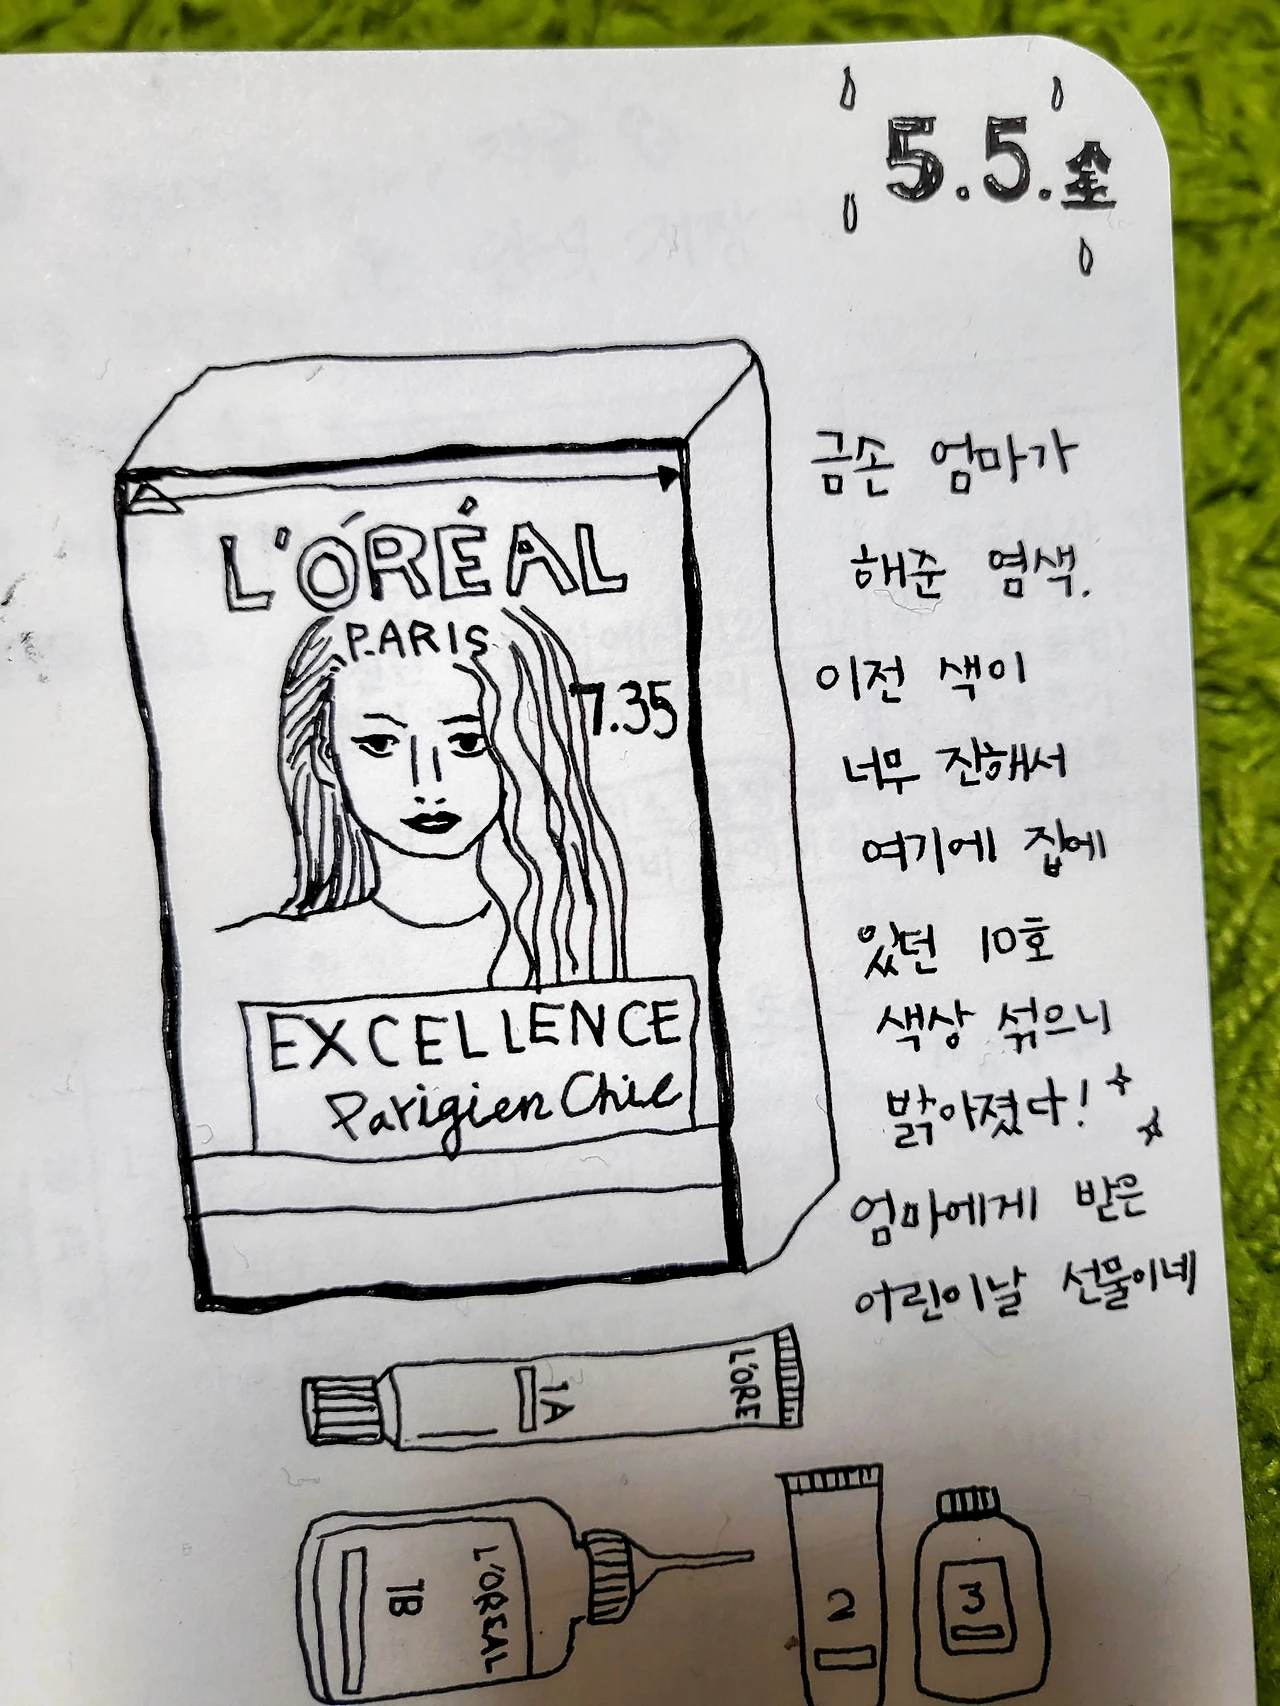 5.5.金
L'ORÉAL
PARIS
7.35
EXCELLENCE
Parigien Chic
금손 엄마가
해준 염색.
이전 색이
너무 진해서
여기에 집에
있던 10호
색상 섞으니
밝아졌다!
엄마에게 받은
어린이날 선물이네
1A
L'ORE
1B
L'OREAL
2
3